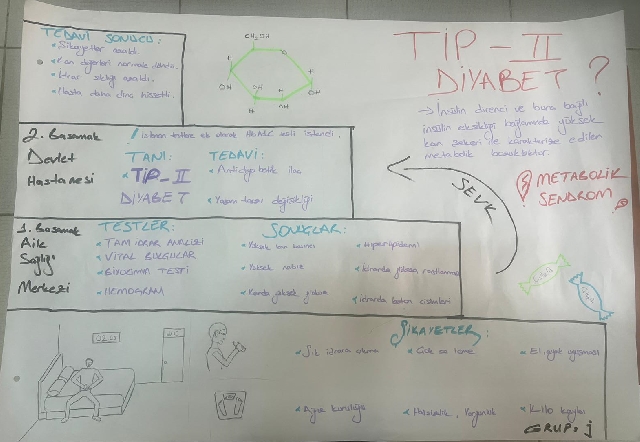 TEDAVİ SONUCU:
Şikayetler azaldı.
Kan değerleri normale döndü.
İdrar sıklığı azaldı.
Hasta daha dinç hissetti.
CH₂OH
O
H
OH
H
OH
H
OH
TİP-II
DİYABET ?
→ İnsülin direnci ve buna bağlı
insülin eksikliği bağlamında yüksek
kan şekeri ile karakterize edilen
metabolik bozukluktur.
METABOLİK
SENDROM
SEVK
2. Basamak
Devlet
Hastanesi
! istenen testlere ek olarak HbA1C testi istendi.
TANI:
TİP-II
DİYABET
TEDAVİ:
Antidiyabetik ilaç
Yaşam tarzı değişikliği
1. Basamak
Aile
Sağlığı
Merkezi
TESTLER:
TAM İDRAR ANALİZİ
VİTAL BULGULAR
BİYOKİMYA TESTİ
HEMOGRAM
SONUÇLAR:
Yüksek kan basıncı
Yüksek nabız
Kanda yüksek glukoz
Hiperlipidemi
İdrarda glukoza rastlanması
İdrarda keton cisimleri
ŞİKAYETLER:
Sık idrara çıkma
Çok su içme
El, ayak uyuşması
Ağız kuruluğu
Halsizlik, Yorgunluk
Kilo kaybı
WC
GRUP: j